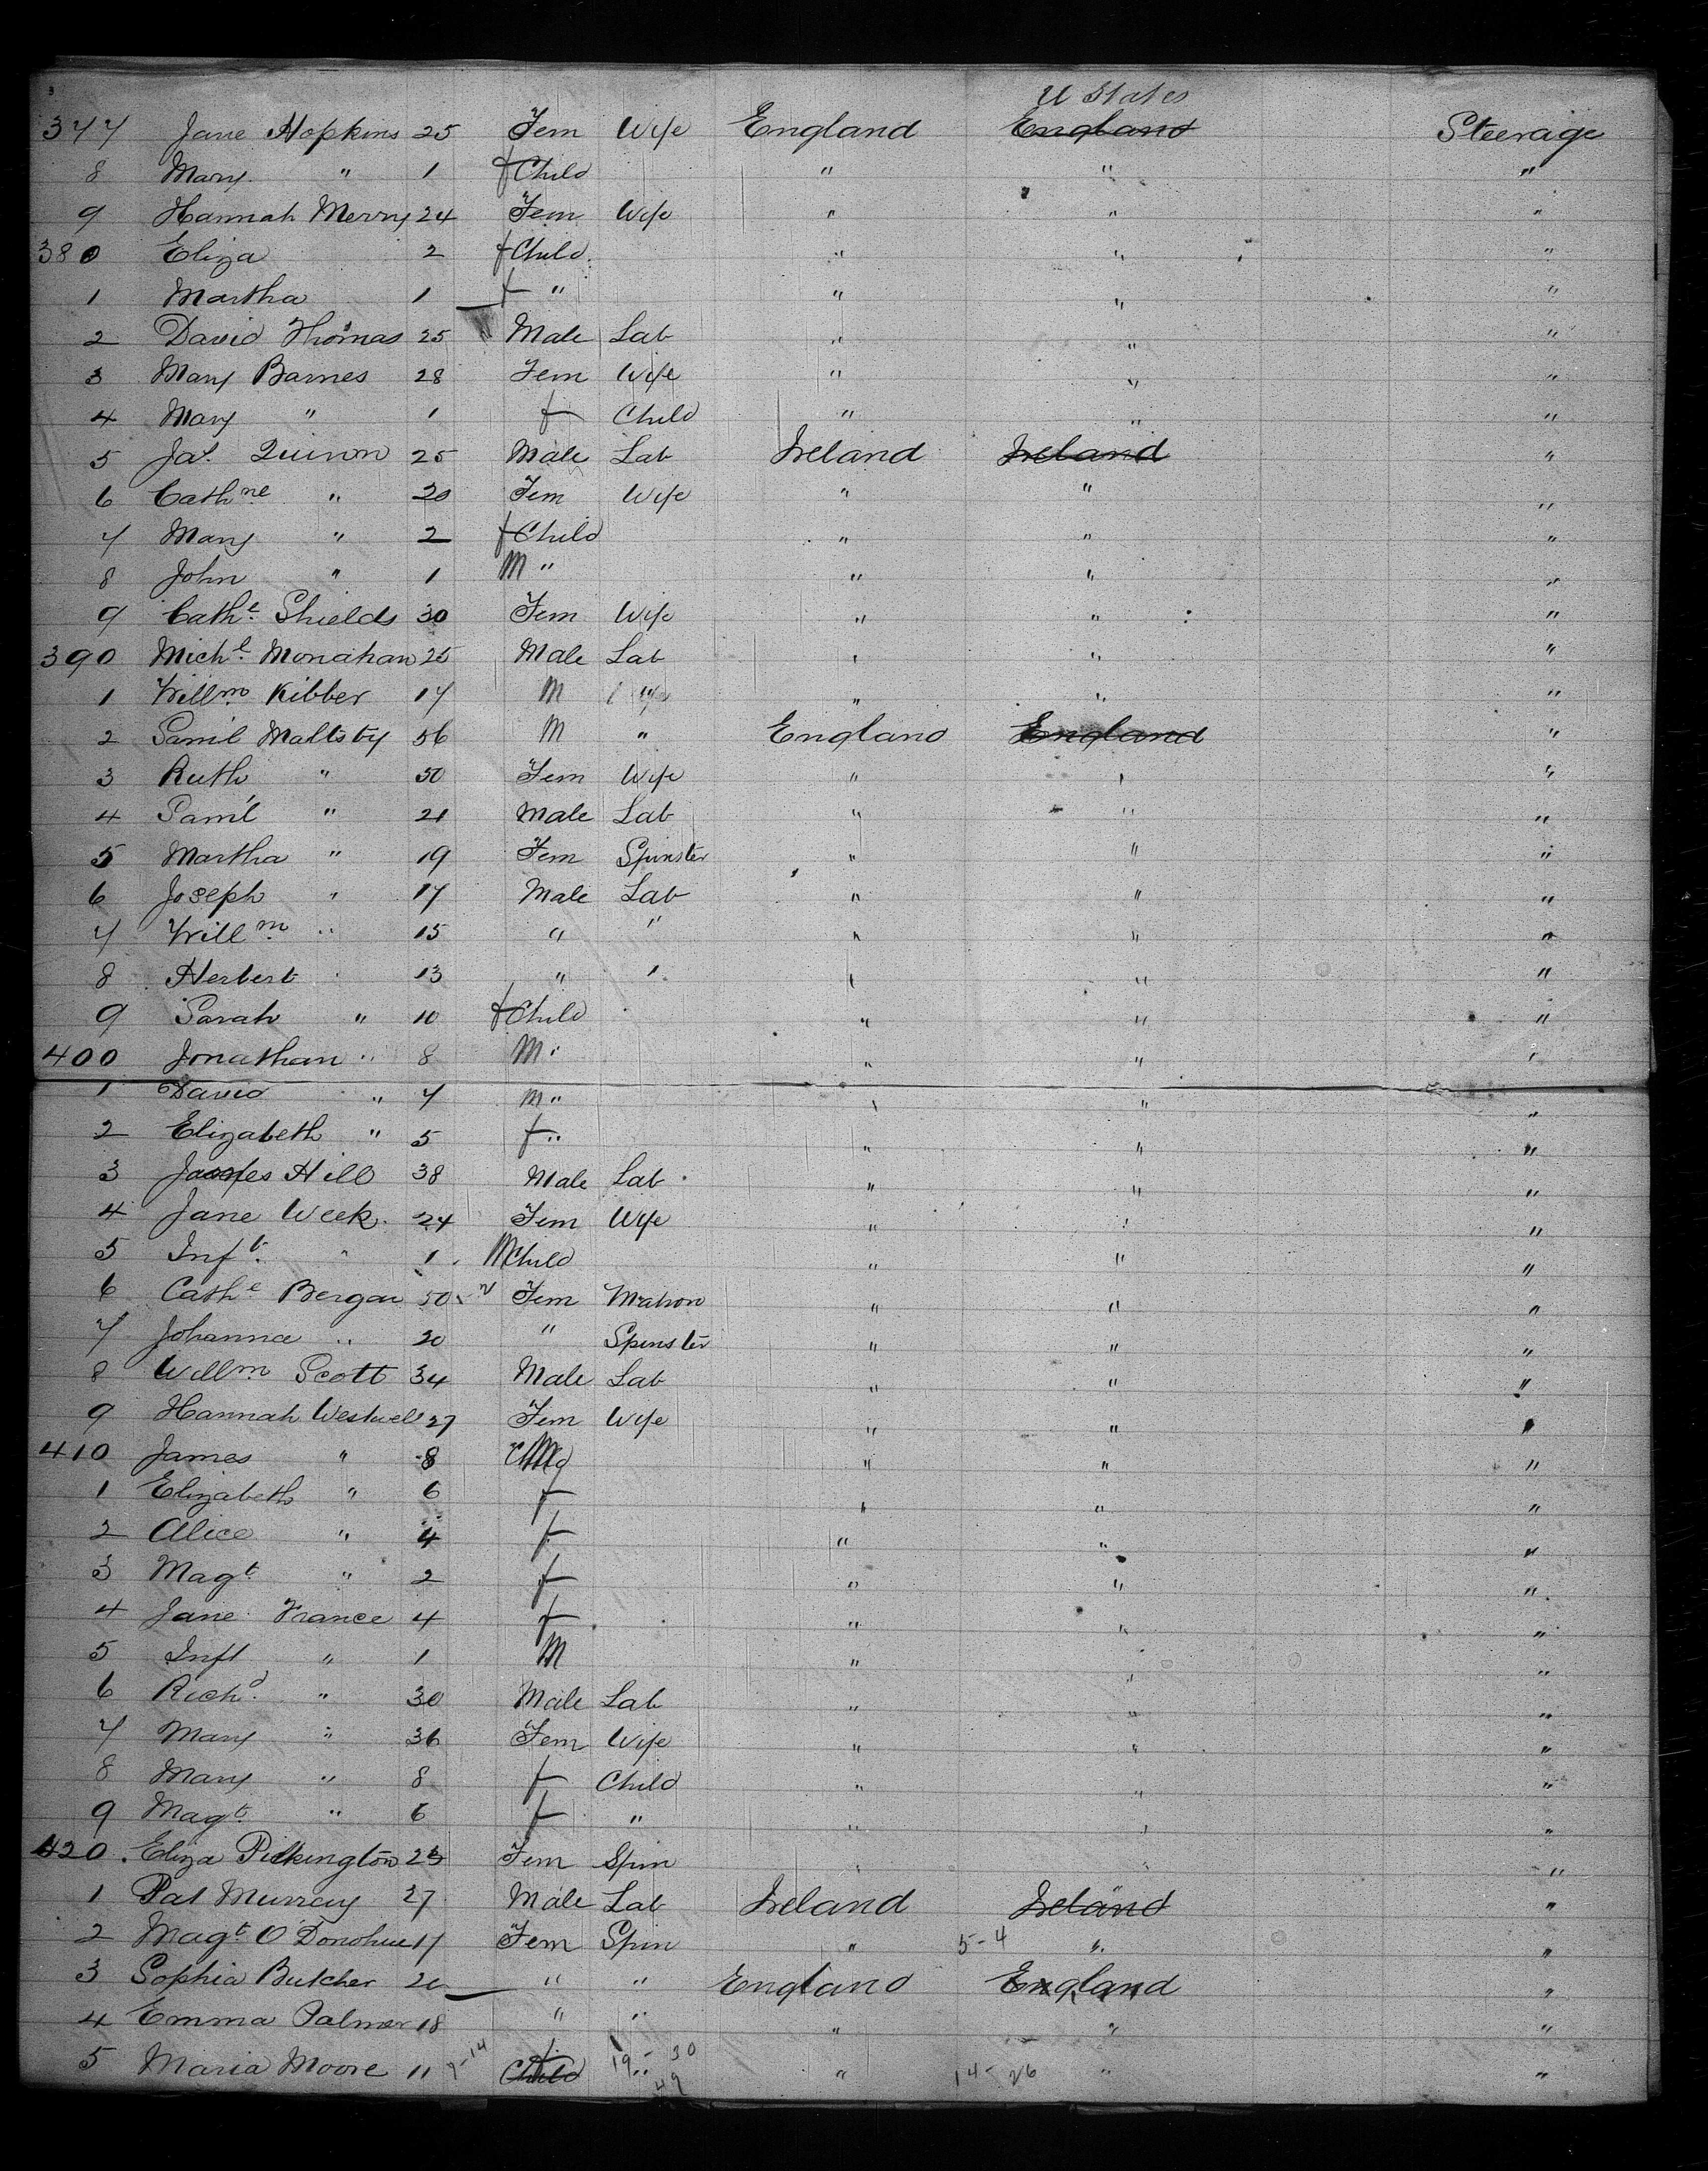 U States
377 Jane Hopkins 25 Fem Wife England England Steerage
8 Mary " 1 f Child " " "
9 Hannah Merry 24 Fem Wife " " "
380 Eliza 2 f Child " " "
1 Martha 1 f " " " "
2 David Thomas 25 Male Lab " " "
3 Mary Barnes 28 Fem Wife " " "
4 Mary " 1 f Child " " "
5 Jas. Quinon 25 Male Lab Ireland Ireland "
6 Cathne " 20 Fem Wife " " "
7 Mary " 2 f Child " " "
8 John " 1 M " " " "
9 Cathe Shields 30 Fem Wife " " "
390 Michl Monahan 25 Male Lab " " "
1 Willm Kibber 17 M " " "
2 Saml Maltsby 56 M " England England "
3 Ruth " 50 Fem Wife " " "
4 Saml " 21 Male Lab " " "
5 Martha " 19 Fem Spinster " " "
6 Joseph " 17 Male Lab " " "
7 Willm " 15 " " " " "
8 Herbert " 13 " " " " "
9 Sarah " 10 f Child " " "
400 Jonathan " 8 M " " " "
1 David " 7 M " " " "
2 Elizabeth " 5 f " " " "
3 James Hill 38 Male Lab " " "
4 Jane Week 24 Fem Wife " " "
5 Inft " 1 M Child " " "
6 Cathe Bergan 50 Fem Matron " " "
7 Johanna " 20 " Spinster " " "
8 Willm Scott 34 Male Lab " " "
9 Hannah Westwell 27 Fem Wife " " "
410 James " 8 M " " "
1 Elizabeth " 6 f " " "
2 Alice " 4 f " " "
3 Magt " 2 f " " "
4 Jane France 4 f " " "
5 Inft " 1 M " " "
6 Richd " 30 Male Lab " " "
7 Mary " 36 Fem Wife " " "
8 Mary " 8 f Child " " "
9 Magt " 6 f " " " "
420 Eliza Pilkington 23 Fem Spin " " "
1 Pat Murray 27 Male Lab Ireland Ireland "
2 Magt O'Donohue 17 Fem Spin " 5-4 " "
3 Sophia Butcher 20 " " England England "
4 Emma Palmer 18 " " " " "
5 Maria Moore 11 7-14 f Child 19 " 30 " 14-26 " "
49